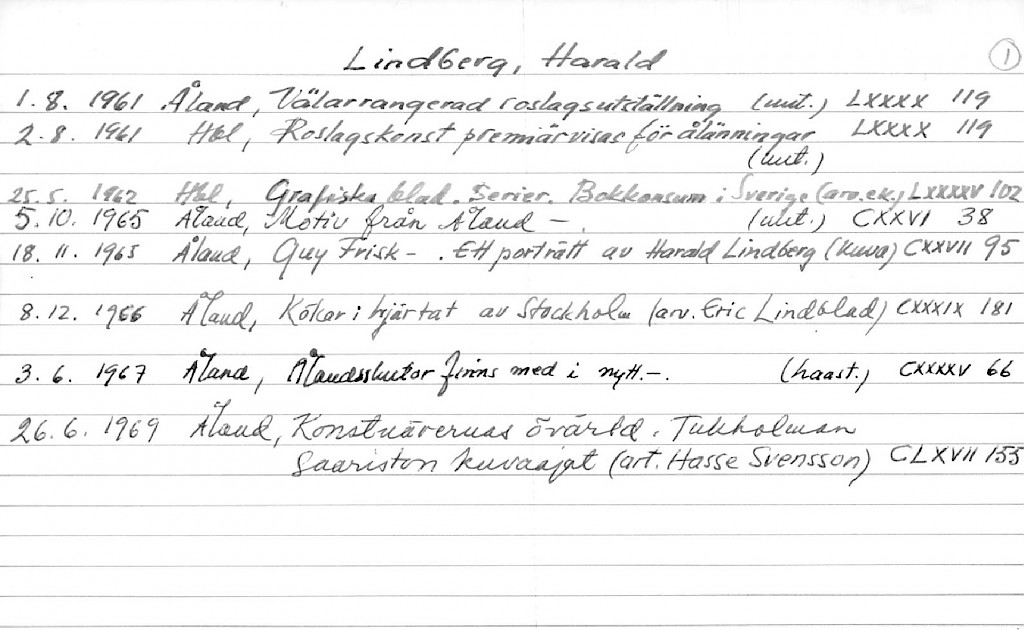 Lindberg, Harald 1
1.8. 1961 Åland, Välarrangerad roslagsutställning (uut.) LXXXX 119
2.8. 1961 Hbl, Roslagskonst premiärvisas för ålänningar LXXXX 119
(uut.)
25.5. 1962 Hbl, Grafiska blad. Serier. Bokkonsum i Sverige (arv. e.k.) LXXXXV 102
5.10. 1965 Åland, Motiv från Åland – . (uut.) CXXVI 38
18.11. 1965 Åland, Guy Frisk – . Ett porträtt av Harald Lindberg (kuva) CXXVII 95
8.12. 1966 Åland, Kökar i hjärtat av Stockholm (arv. Eric Lindblad) CXXXIX 181
3.6. 1967 Åland, Ålandsskutor finns med i nytt. –. (haast.) CXXXXV 66
26.6. 1969 Åland, Konstnärernas övärld. Tukholman
saariston kuvaajat (art. Hasse Svensson) CLXVII 155